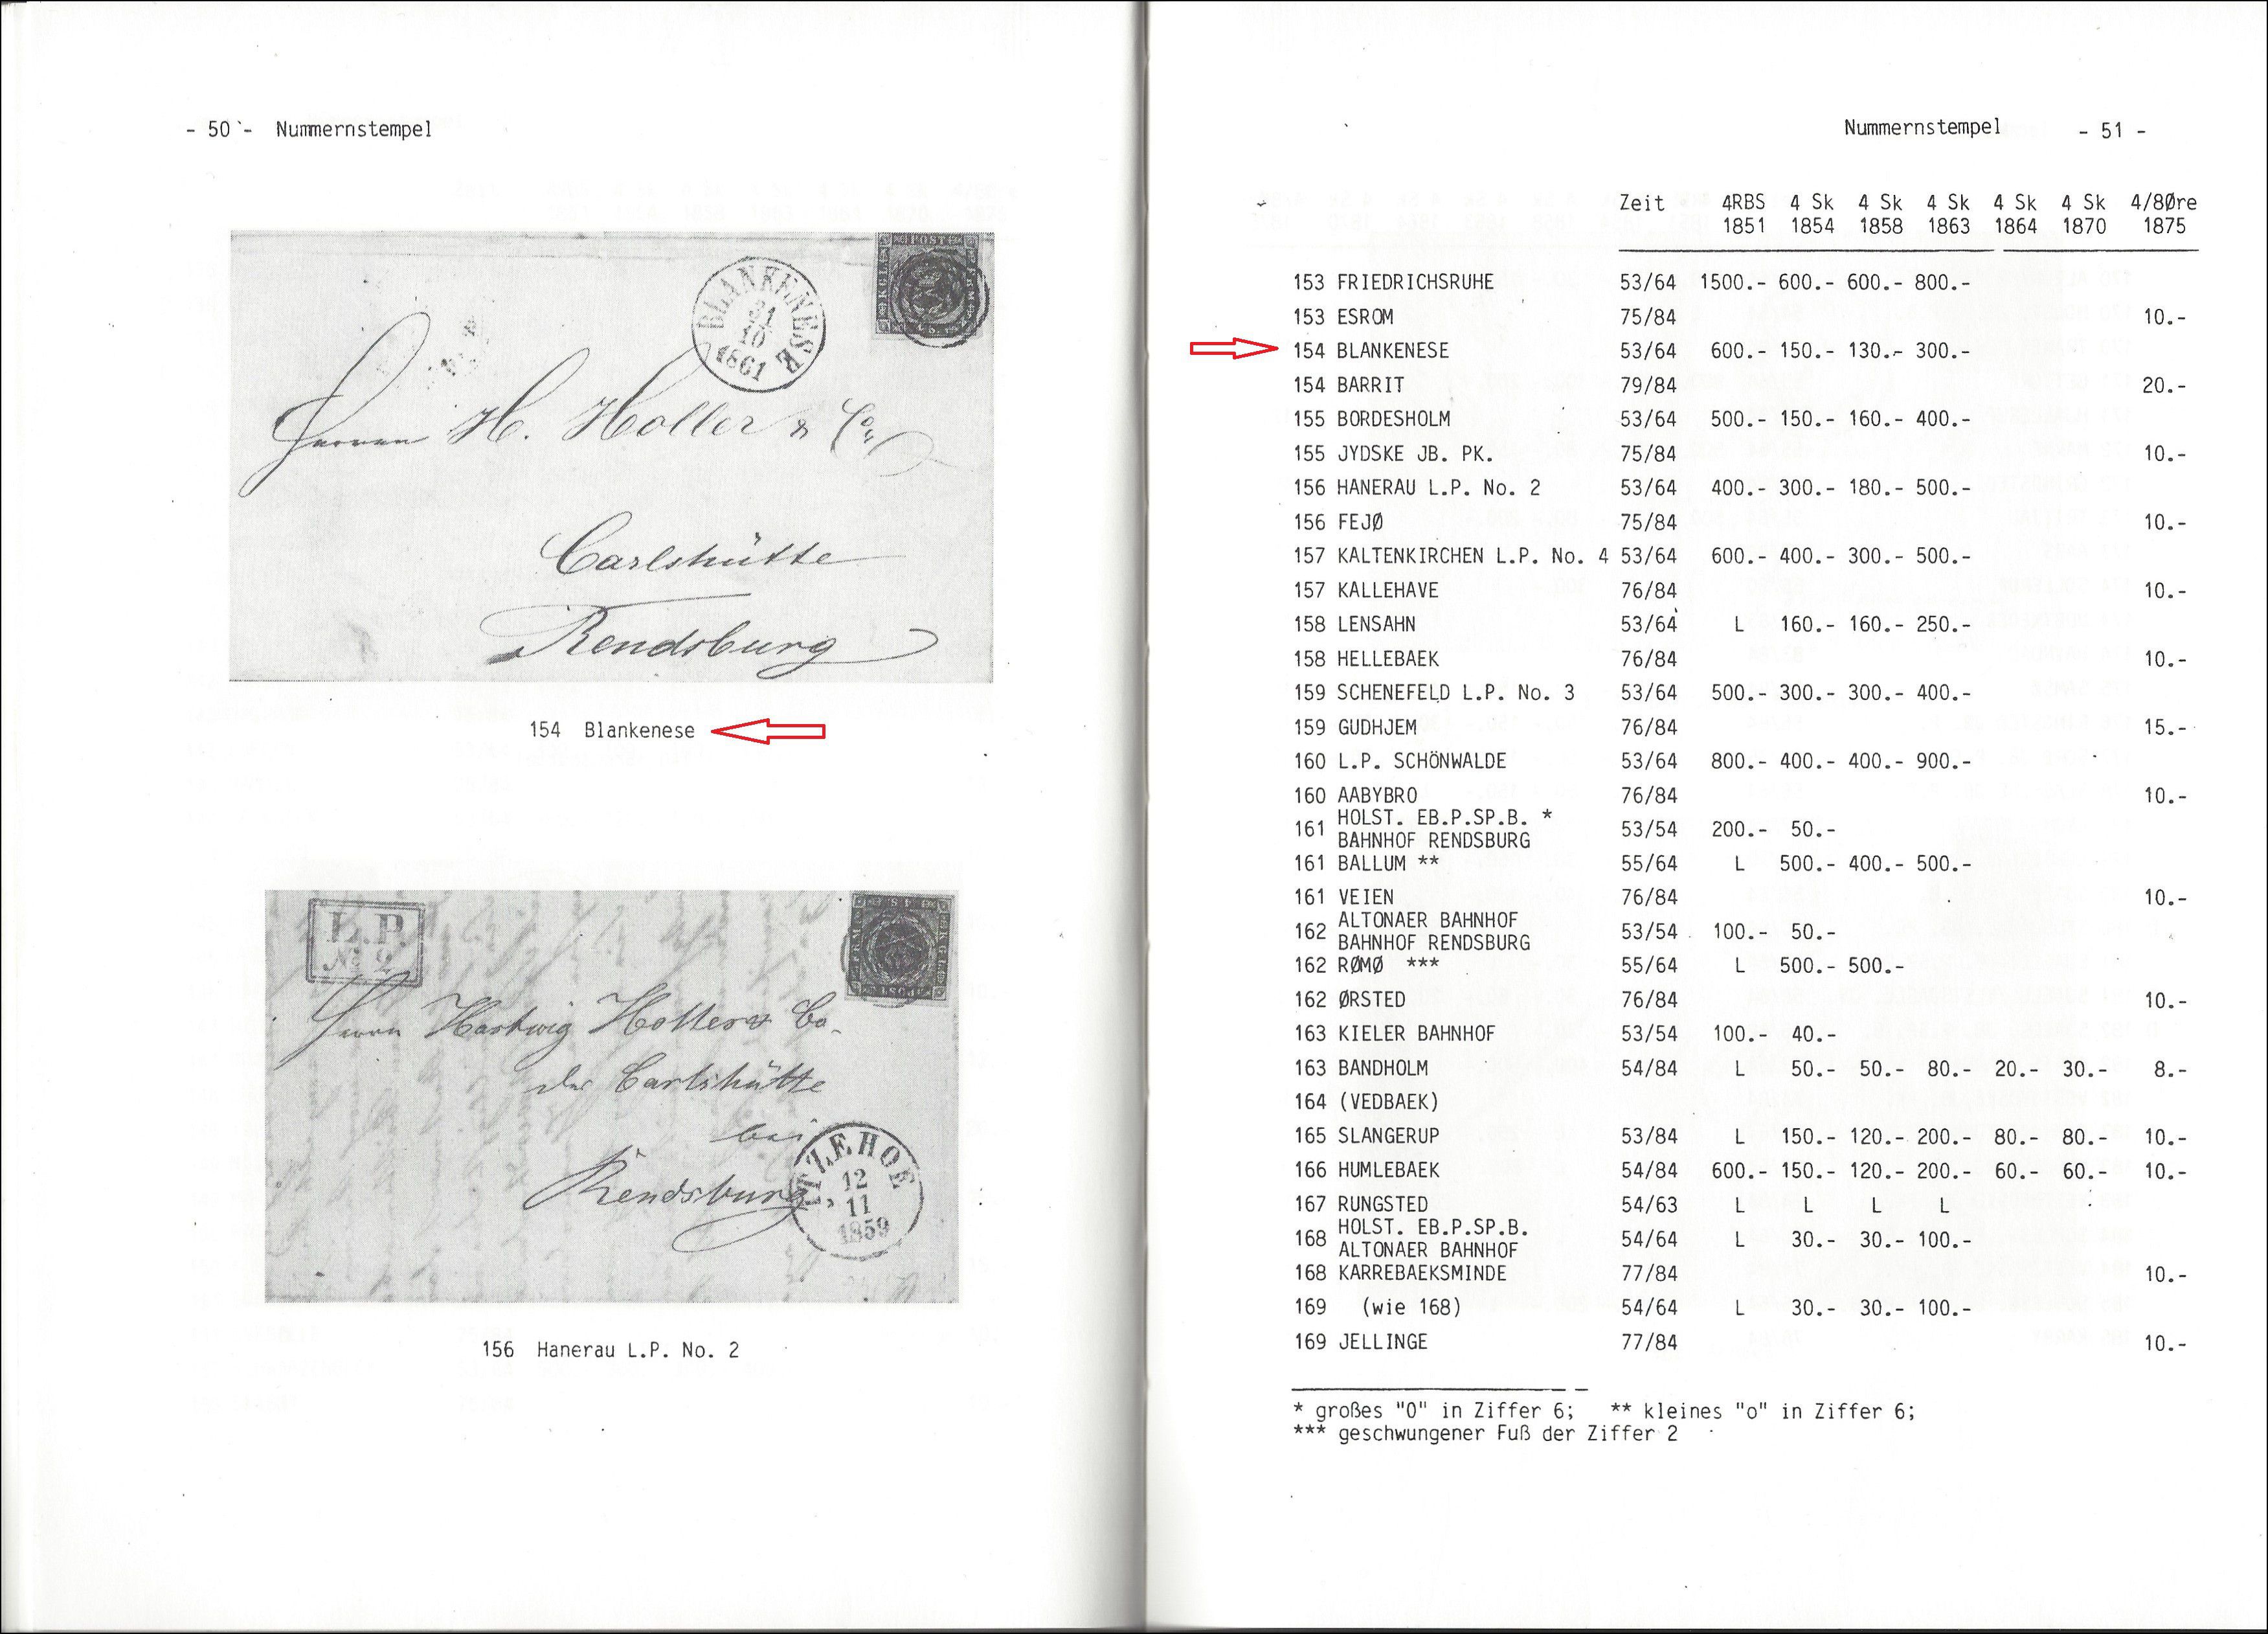 - 50 - Nummernstempel
BLANKENESE
21
10
1861
Herren H. Holler & Co
Carlshütte
Rendsburg
154 Blankenese
L.P.
No 2
Herrn Hartwig Holler & Co.
der Carlshütte
bei
Rendsburg
ITZEHOE
12
11
1859
156 Hanerau L.P. No. 2
Nummernstempel - 51 -
Zeit 4RBS 4 Sk 4 Sk 4 Sk 4 Sk 4 Sk 4/8Øre
1851 1854 1858 1863 1864 1870 1875
153 FRIEDRICHSRUHE 53/64 1500.- 600.- 600.- 800.-
153 ESROM 75/84 10.-
154 BLANKENESE 53/64 600.- 150.- 130.- 300.-
154 BARRIT 79/84 20.-
155 BORDESHOLM 53/64 500.- 150.- 160.- 400.-
155 JYDSKE JB. PK. 75/84 10.-
156 HANERAU L.P. No. 2 53/64 400.- 300.- 180.- 500.-
156 FEJØ 75/84 10.-
157 KALTENKIRCHEN L.P. No. 4 53/64 600.- 400.- 300.- 500.-
157 KALLEHAVE 76/84 10.-
158 LENSAHN 53/64 L 160.- 160.- 250.-
158 HELLEBAEK 76/84 10.-
159 SCHENEFELD L.P. No. 3 53/64 500.- 300.- 300.- 400.-
159 GUDHJEM 76/84 15.-
160 L.P. SCHÖNWALDE 53/64 800.- 400.- 400.- 900.-
160 AABYBRO 76/84 10.-
161 HOLST. EB.P.SP.B. *
BAHNHOF RENDSBURG 53/54 200.- 50.-
161 BALLUM ** 55/64 L 500.- 400.- 500.-
161 VEIEN 76/84 10.-
162 ALTONAER BAHNHOF
BAHNHOF RENDSBURG 53/54 100.- 50.-
162 RØMØ *** 55/64 L 500.- 500.-
162 ØRSTED 76/84 10.-
163 KIELER BAHNHOF 53/54 100.- 40.-
163 BANDHOLM 54/84 L 50.- 50.- 80.- 20.- 30.- 8.-
164 (VEDBAEK)
165 SLANGERUP 53/84 L 150.- 120.- 200.- 80.- 80.- 10.-
166 HUMLEBAEK 54/84 600.- 150.- 120.- 200.- 60.- 60.- 10.-
167 RUNGSTED 54/63 L L L L
168 HOLST. EB.P.SP.B.
ALTONAER BAHNHOF 54/64 L 30.- 30.- 100.-
168 KARREBAEKSMINDE 77/84 10.-
169 (wie 168) 54/64 L 30.- 30.- 100.-
169 JELLINGE 77/84 10.-
* großes "O" in Ziffer 6; ** kleines "o" in Ziffer 6;
*** geschwungener Fuß der Ziffer 2